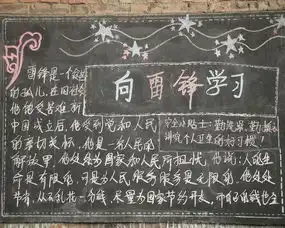 向雷锋学习
雷锋是一个
的孤儿,在旧社
他饱受苦难,新
中国成立后,他受到党和人民
的亲切关怀,他是一为人民的
解放军,他处处为国家和人民所担忧,他说:人的生
命是有限的,可是为人民服务是无限的,他处处
节省,从不乱花一分钱,尽量为国家节约开支,
安全小贴士:勤洗澡,勤
讲究个人卫生的好习惯)